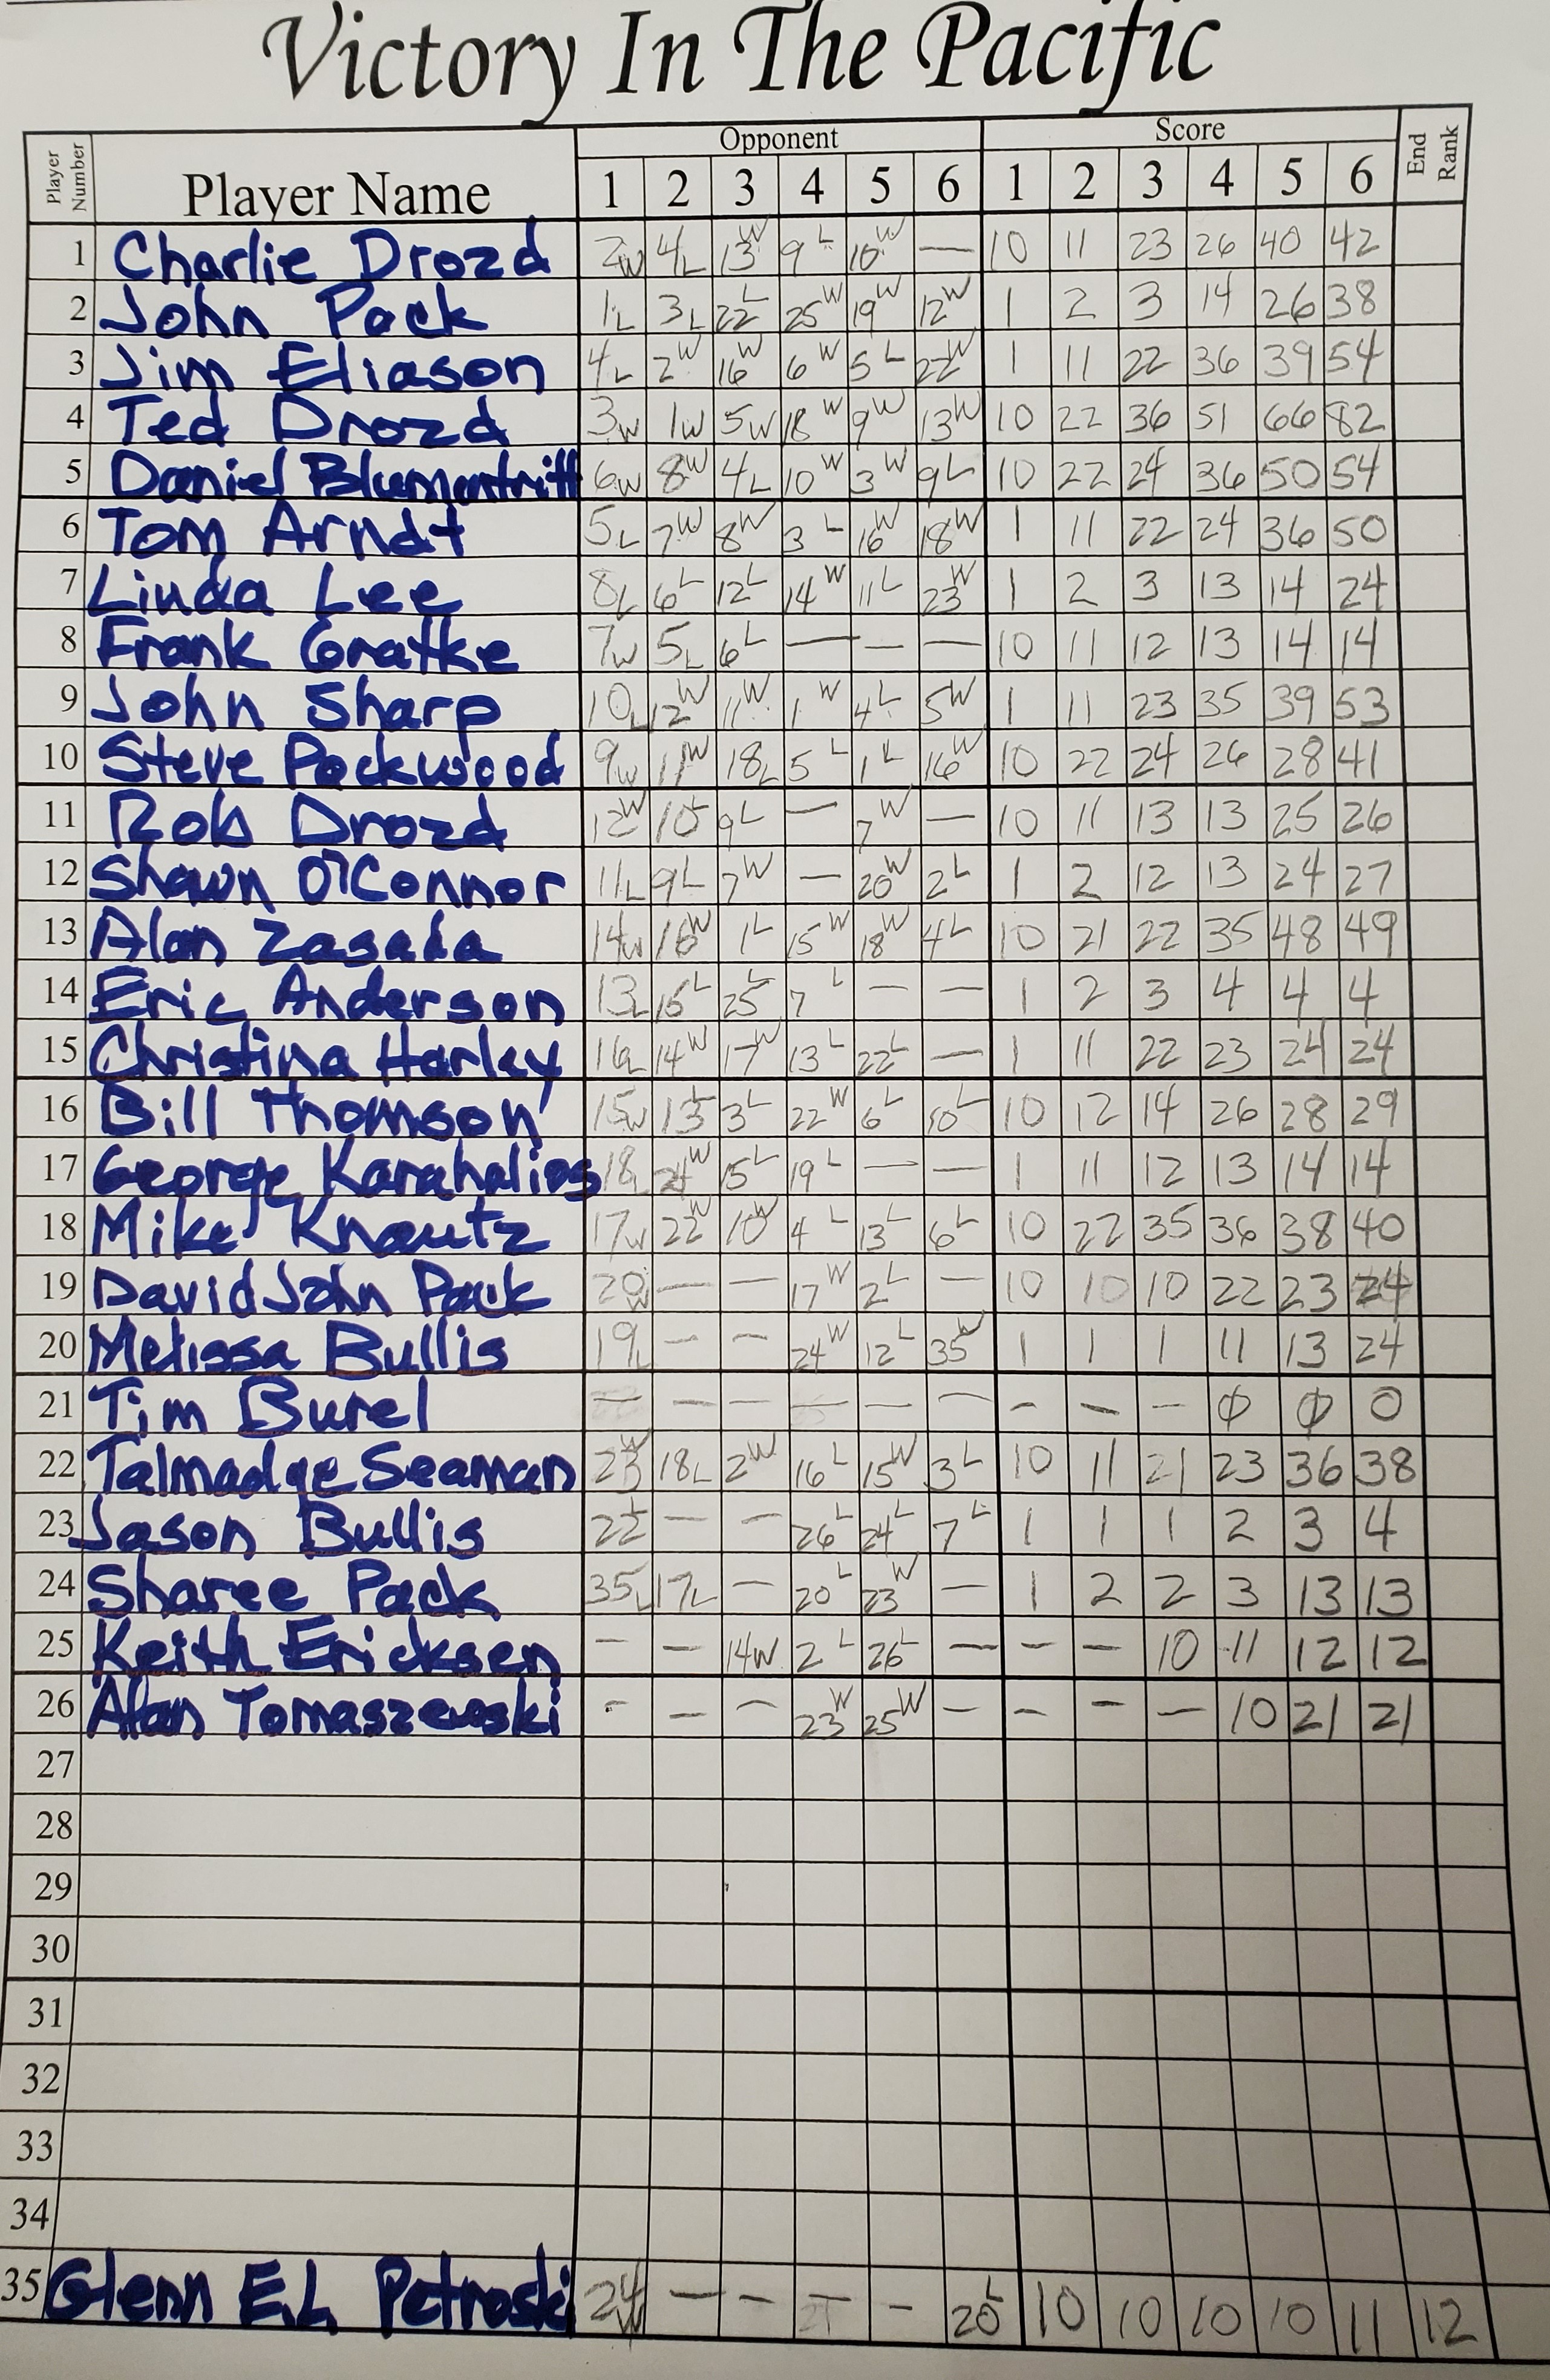 Victory In The Pacific
Player Number Player Name Opponent Score End Rank
1 2 3 4 5 6 1 2 3 4 5 6
1 Charlie Drozd 2W 4L 13W 9L 10W — 10 11 23 26 40 42
2 John Pack 1L 3L 22L 25W 19W 12W 1 2 3 14 26 38
3 Jim Eliason 4L 2W 16W 6W 5L 22W 1 11 22 36 39 54
4 Ted Drozd 3W 1W 5W 18W 9W 13W 10 22 36 51 66 82
5 Daniel Blumentritt 6W 8W 4L 10W 3W 9L 10 22 24 36 50 54
6 Tom Arndt 5L 7W 8W 3L 16W 18W 1 11 22 24 36 50
7 Linda Lee 8L 6L 12L 14W 11L 23W 1 2 3 13 14 24
8 Frank Gratke 7W 5L 6L — — — 10 11 12 13 14 14
9 John Sharp 10L 12W 11W 1W 4L 5W 1 11 23 35 39 53
10 Steve Packwood 9W 11W 18L 5L 1L 16W 10 22 24 26 28 41
11 Rob Drozd 12W 10L 9L — 7W — 10 11 13 13 25 26
12 Shawn O'Connor 11L 9L 7W — 20W 2L 1 2 12 13 24 27
13 Alan Zasada 14W 16W 1L 15W 18W 4L 10 21 22 35 48 49
14 Eric Anderson 13L 15L 25L 7L — — 1 2 3 4 4 4
15 Christina Harley 16L 14W 17W 13L 22L — 1 11 22 23 24 24
16 Bill Thomson 15W 13L 3L 22W 6L 10L 10 12 14 26 28 29
17 George Karahalios 18L 24W 15L 19L — — 1 11 12 13 14 14
18 Mike Knautz 17W 22W 10W 4L 13L 6L 10 22 35 36 38 40
19 David John Pack 20W — — 17W 2L — 10 10 10 22 23 24
20 Melissa Bullis 19L — — 24W 12L 35W 1 1 1 11 13 24
21 Tim Burel — — — — — — - — — φ φ 0
22 Talmadge Seaman 23W 18L 2W 16L 15W 3L 10 11 21 23 36 38
23 Jason Bullis 22L — — 26L 24L 7L 1 1 1 2 3 4
24 Sharee Pack 35L 17L — 20L 23W — 1 2 2 3 13 13
25 Keith Ericksen — — 14W 2L 26L — — — 10 11 12 12
26 Alan Tomaszewski - — — 23W 25W — — — — 10 21 21
27
28
29
30
31
32
33
34
35 Glenn E.L. Petroski 24W — — — - 20L 10 10 10 10 11 12